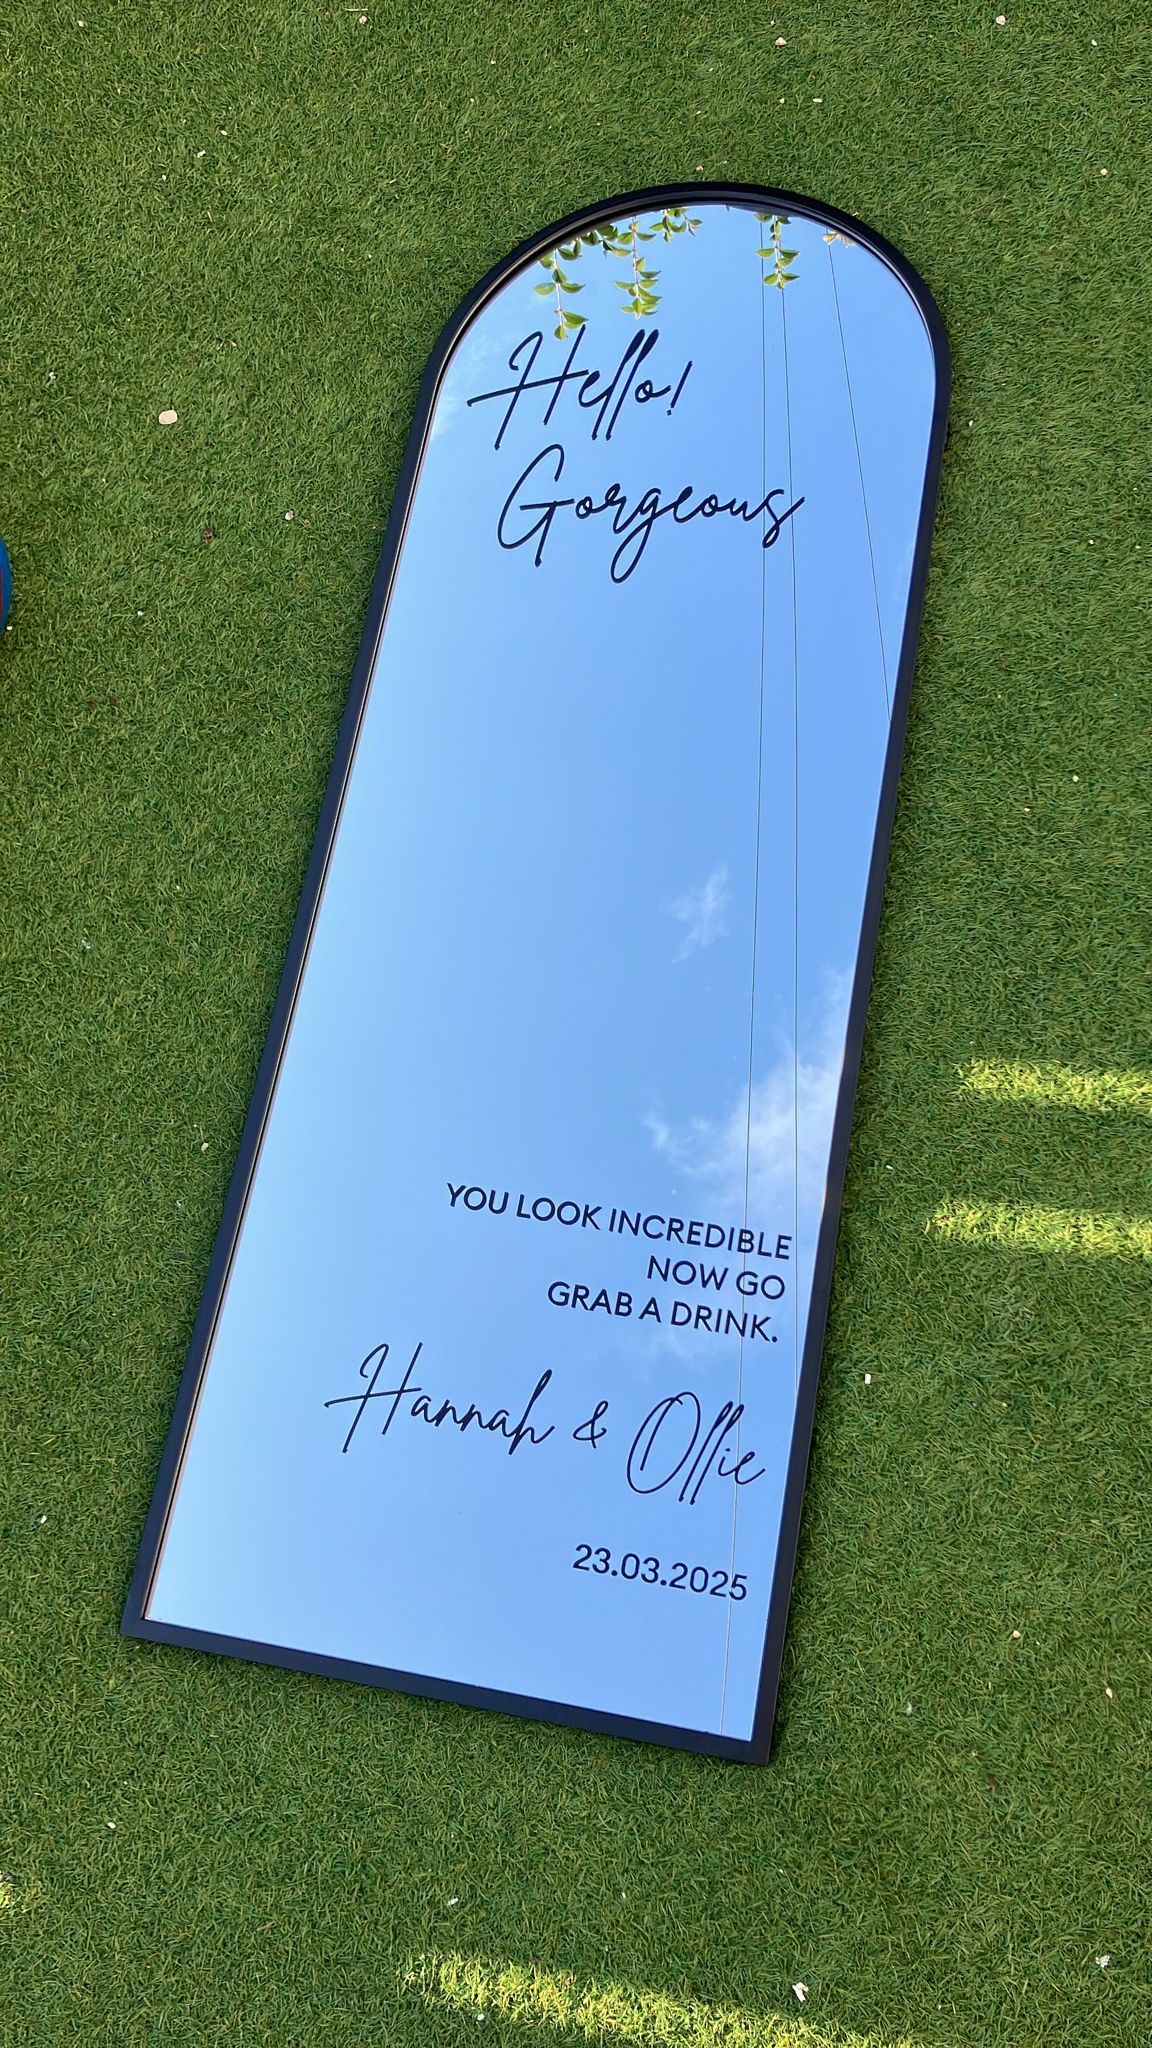 Hello!
Gorgeous
YOU LOOK INCREDIBLE
NOW GO
GRAB A DRINK.
Hannah & Ollie
23.03.2025